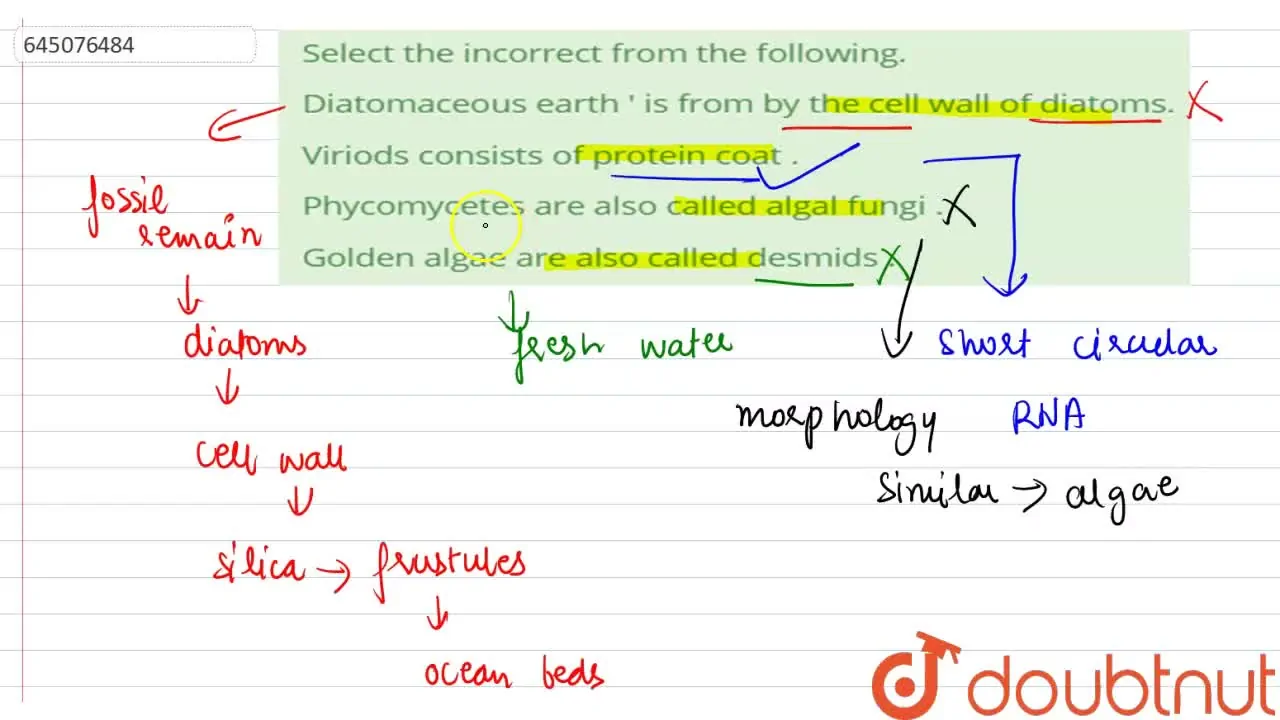 645076484
Select the incorrect from the following.
Diatomaceous earth ' is from by the cell wall of diatoms. X
Viriods consists of protein coat .
Phycomycetes are also called algal fungi . X
Golden algae are also called desmids X
fossil
remain
diatoms
cell wall
silica → frustules
ocean beds
fresh water
short circular
RNA
morphology
similar → algae
doubtnut